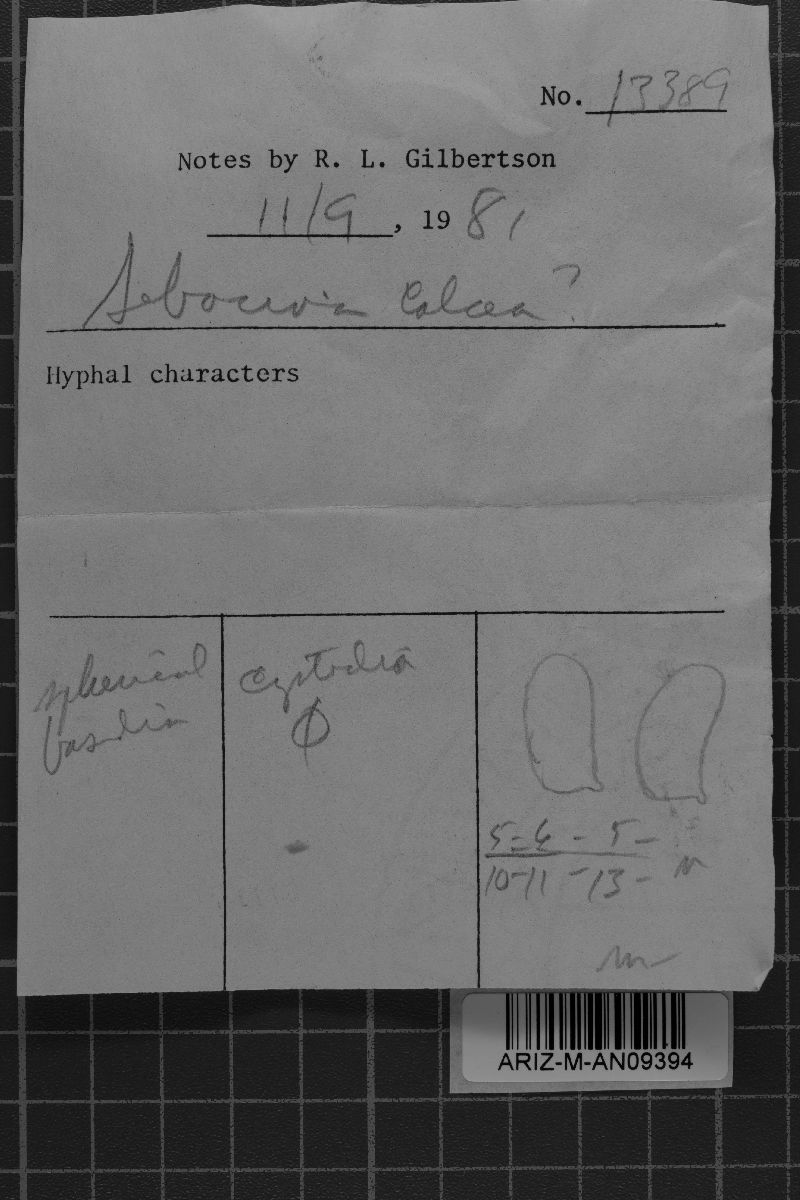 No. 13389
Notes by R. L. Gilbertson
11/9, 19 81
Sebacina calcea?
Hyphal characters
spherical
basidia
cystidia
φ
5-6 - 5 -
10-11 - 13 -
ARIZ-M-AN09394